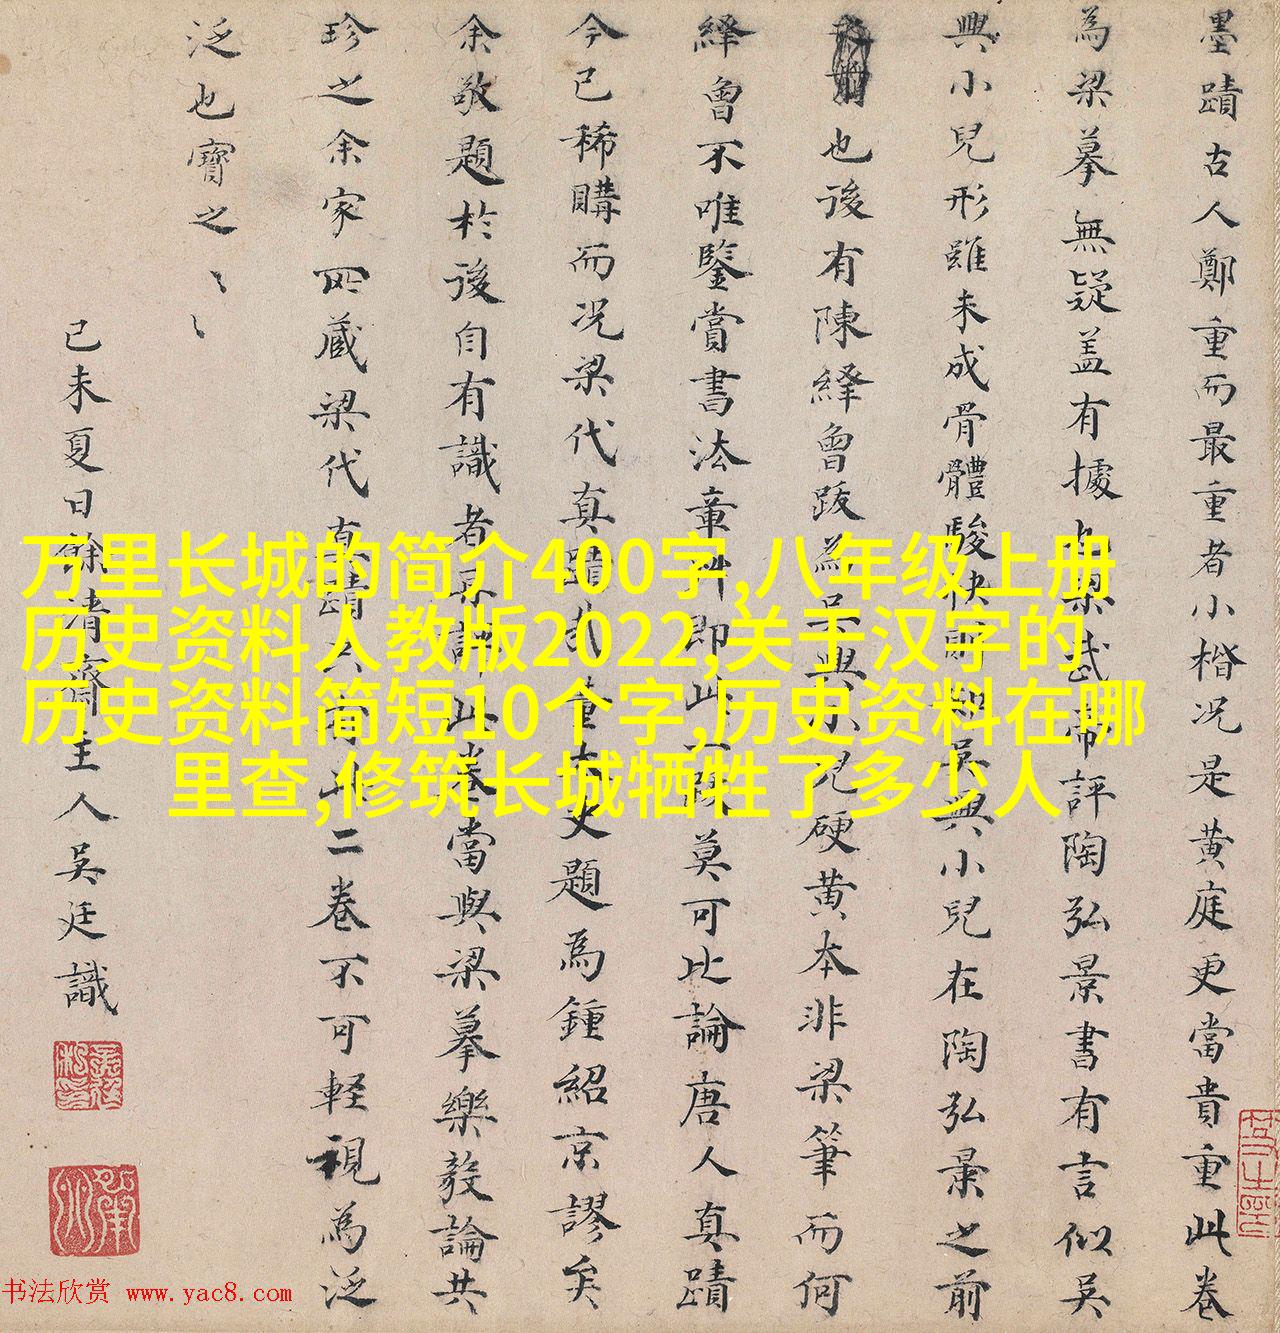 墨蹟古人鄭重而最重者小楷况是黄庭更當貴重此卷
為梁摹無疑盖有據也梁武帝評陶弘景書有言似吳
興小兒形雖未成骨體駿快則知吳興小兒在陶弘景之前
也後有陳繹曾跋為吳興小兒硬黄本非梁筆而何
繹曾不唯鑒賞書法章艸即此一段莫可比論唐人真蹟
今已稀購而况梁代真蹟式董太史題為鍾紹京謬矣
余敬題於後自有識者再評此卷當與梁摹樂毅論共
珍之余家所藏梁代真蹟只有此二卷不可輕視為泛
泛也寶之〻〻
己未夏日餘清齋主人吳廷識
万里长城的简介400字,八年级上册
历史资料人教版2022,关于汉字的
历史资料简短10个字,历史资料在哪
里查,修筑长城牺牲了多少人
书法欣赏 www.yac8.com